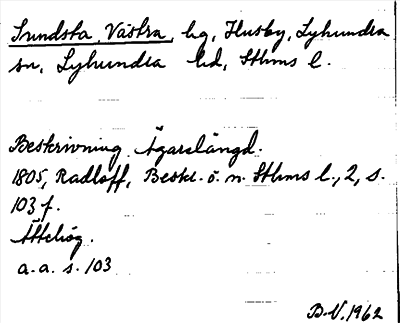 Sundsta, Västra, hg, Husby, Lyhundra
sn, Lyhundra hd, Sthms l.
Beskrivning. Ägarelängd.
1805, Radloff, Beskr. ö. n. Sthms l., 2, s.
103 f.
Ättehög.
a.a. s. 103
B.V. 1962